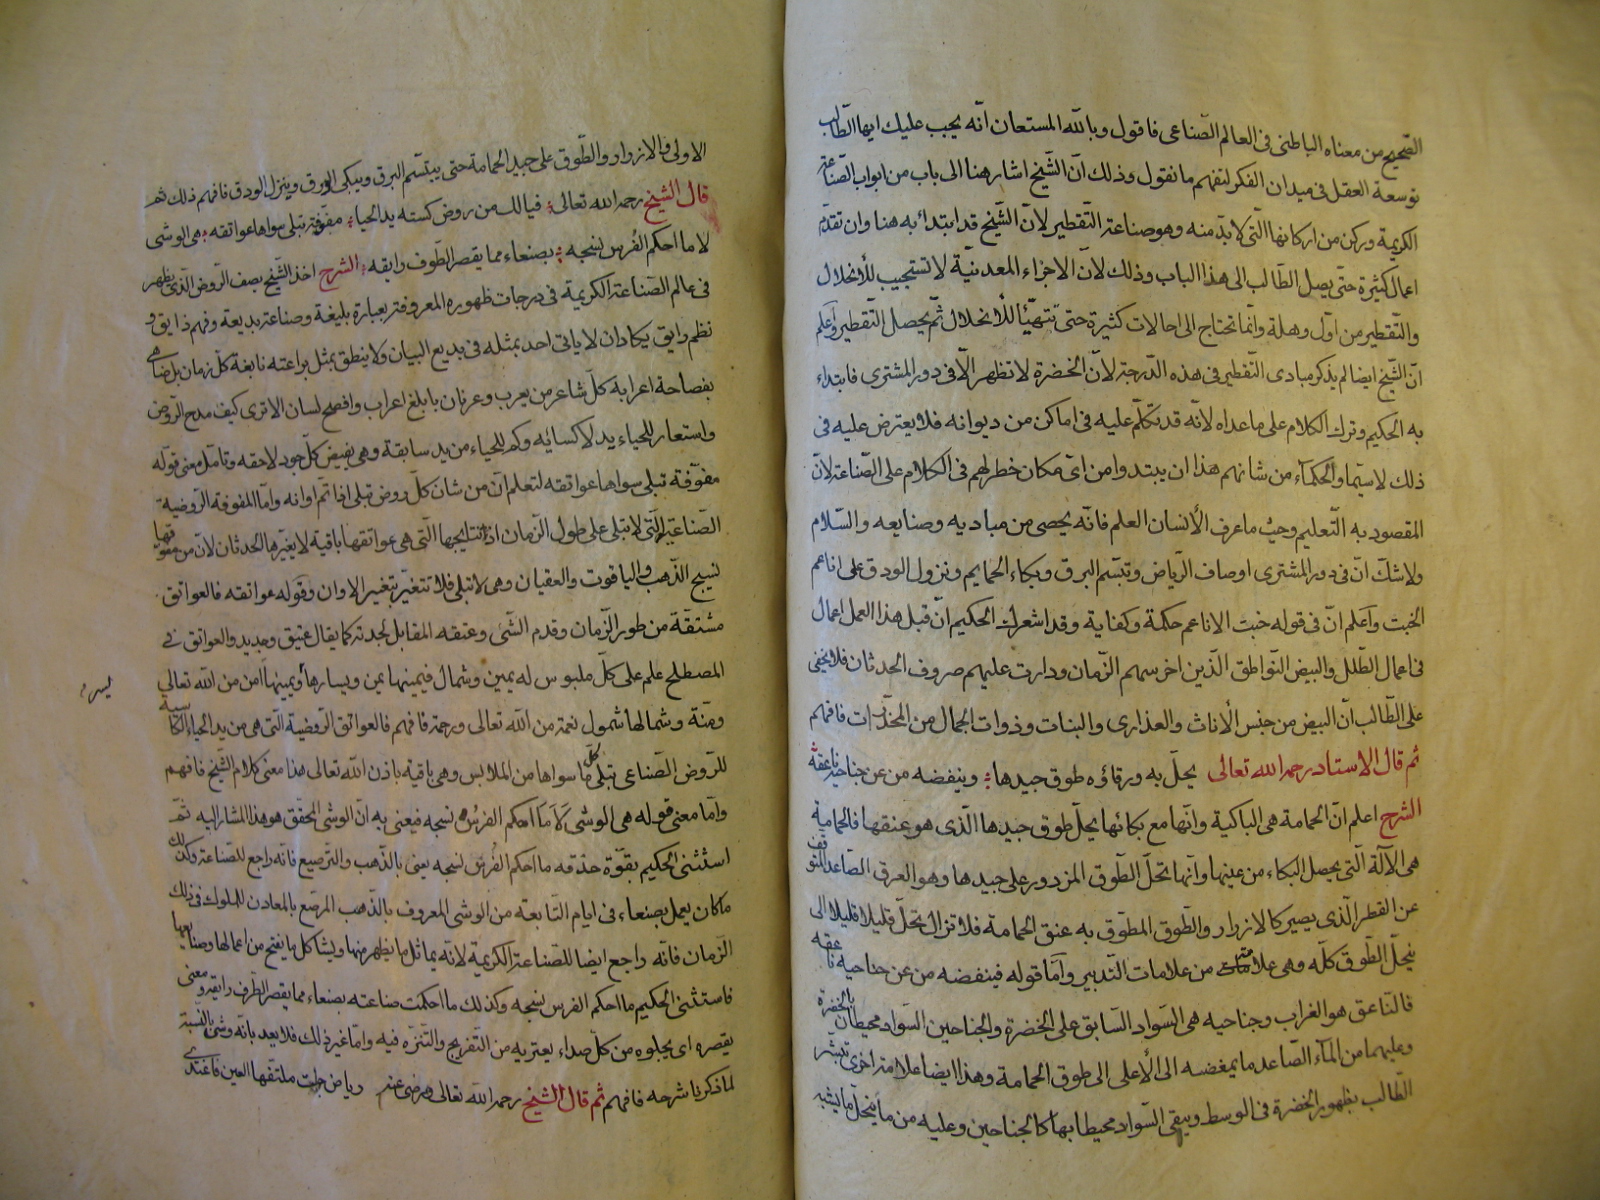 الصحيح من معناه الباطنى فى العالم الصّناعى فاقول وبالله المستعان انّه يجب عليك ايها الطّالب
توسعة العقل فى ميدان الفكر لتفهم ما نقول وذلك انّ الشّيخ اشار هنا الى باب من ابواب الصّناعة
الكريمة وركن من اركانها الّتى لا بدّ منه وهو صناعة التّقطير لانّ الشّيخ قد ابتداء به هنا وان تقدّم
اعمال كثيرة حتّى يصل الطّالب الى هذا الباب وذلك لانّ الاجزاء المعدنيّة لا تستجيب للأنحلال
والتّقطير من اوّل وهلة وانّما تحتاج الى احالات كثيرة حتى تتهيّأ للأنحلال ثمّ يحصل التّقطير واعلم
انّ الشّيخ ايضا لم يذكر مبادى التّقطير فى هذه الدّرجة لانّ الخضرة لا تظهر الّا فى دور المشترى فابتداء
به الحكيم وترك الكلام على ما عداه لانّه قد تكلّم عليه فى اماكن من ديوانه فلا يعترض عليه فى
ذلك لا سيّما والحكمآء من شانهم هذا ان يبتدوا من اىّ مكان خطر لهم فى الكلام على الصّناعة لانّ
المقصود به التّعليم وحيث ما عرف الأنسان العلم فانّه يحصى من مباديه وصنايعه والسّلام
ولا شكّ انّ فى دور المشترى اوصاف الرّياض وتبسّم البرق وبكاء الحمايم ونزول الودق على اناعم
الخبت واعلم انّ فى قوله خبت الاناعم حكمة وكفاية وقد اشعرك الحكيم انّ قبل هذا العمل اعمال
فى اعمال الطّلل والبيض النّواطق الّذين اخرسهم الزّمان ودارت عليهم صروف الحدثان فلا يخفى
على الطّالب انّ البيض من جنس الأناث والعذارى والبنات وذوات الجمال من المخدّرات فافهم
ثم قال الاستاد رحمه الله تعالى يحلّ به ورقاؤه طوق جيدها وينفضه من عن جناحيه ناعقه
الشرح اعلم انّ الحمامة هى الباكية وانّها مع بكائها يحلّ طوق جيدها الّذى هو عنقها فالحمامة
هى الآلة الّتى يحصل البكاء من عينها وانّها تحلّ الطّوق المزدور على جيدها وهو العرق الصّاعد المتوقف
عن القطر الّذى يصير كالازوار والطّوق المطّوق به عنق الحمامة فلا تزال تحلّ قليلا قليلا الى
ينحلّ الطّوق كلّه وهى علامة من علامات التّدبير وامّا قوله فينفضه من عن جناحيه ناعقه
فالنّاعق هو الغراب وجناحيه هى السّواد السّابق على الخضرة والجناحين السّواد محيطان بالخضرة
وعليهما من المآء الصّاعد ما يمغضسه الى الأعلى الى طوق الحمامة وهذا ايضا علامة اخرى تبشّر
الطّالب بظهور الخضرة فى الوسط ويبقى السّواد محيطا بها كالجناحين وعليه من ما ينحلّ ما يشبه
الاولى فالازوار والطّوق على جيد الحمامة حتى يبتسّم البرق ويبكى الورق وينزل الودق فافهم ذلك ثم
قال الشّيخ رحمه الله تعالى فيا لك من روض كسته يد الحيا مفوّفة تبلى سواها عواتقه هى الوشى
لا ما احكم الفُرس نسجه بصنعاء مما يقصر الطّوف رايقه الشرح اخذ الشّيخ يصف الرّوض الّذى يظهر
فى عالم الصّناعة الكريمة فى درجات ظهوره المعروفة بعبارة بليغة وصناعة بديعة وفهم ذايق و
نظم رايق يكاد ان لا ياتى احد بمثله فى بديع البيان ولا ينطق بمثل براعته نابغة كلّ زمان بل ضاهى
بفصاحة اعرابه كلّ شاعر من يعرب وعرنان بابلغ اعراب وافصح لسان الا ترى كيف مدح الرّوض
واستعار للحياء يد لاكسائه وكم للحياء من يد سابقة وهى بفيض كلّ جود لاحقه وتامّل معنى قوله
مفوّفة تبلى سواها عواتقه لتعلم انّ من شان كلّ روض تبلى اذا تم اوانه وامّا المفوفة الرّوضية
الصّناعيّة الّتى لا تبلى على طول الزّمان اذ انتايجها الّتى هى عواتقها باقية لا يغيّرها الحدثان لانّ من مفوّفها
نسيج الذّهب والياقوت والعقيان وهى لا تبلى فلا تتغيّر بتغير الاوان وقوله عواتقه فالعواتق
مشتقّة من طور الزّمان وقدم الشّىء وعتيقه المقابل لجدته كما يقال عتيق وجديد والعواتق فى
المصطلح علم على كلّ ملبوس له يمين وشمال فيمينها يمن ويسارها ويمينها امن من الله تعالى
يسر
ومنّة وشمالها شمول نعمة من الله تعالى ورحمة فافهم فالعواتق الرّوضية الّتى هى من يد الحياء الكاسية
للرّوض الصّناعى تبلى كلّ ما سواها من الملابس وهى باقية باذن الله تعالى هذا معنى كلام الشّيخ فافهم
وامّا معنى قوله هى الوشى لا ما احكم الفرُس نسجه فيعنى به انّ الوشى المحقّق هو هذا المشار اليه ثمّ
استثنى الحكيم بقوّة حذقه ما احكم الفُرس نسجه يعنى بالذّهب والتّرصيع فانّه راجع للصّناعة وكذلك
ما كان يعمل بصنعاء فى ايام التّبابعة من الوشى المعروف بالذّهب المرصّع بالمعادن للملوك فى ذلك
الزّمان فانّه راجع ايضا للصّناعة الكريمة لانّه يماثل ما يظهر منها ويشاكل ما ينتج من اعمالها وصنايعها
فاستثنى الحكيم ما احكم الفرس نسجه وكذلك ما احكمت صناعته بصنعاء مما يقصر الطّرف رايقه ومعنى
يقصره اى يجلوه من كلّ صداء يعتريه من التّفريج والتّنزّه فيه وامّا غير ذلك فلا يعد بانّه وشى بالنّسبة
لما ذكرنا شرحه فافهم ثم قال الشّيخ رحمه الله تعالى ورضى عنه ورياض جلت ملتفّها العين فاغتدى